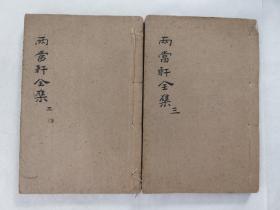 兩當軒全集
兩當軒全集 三